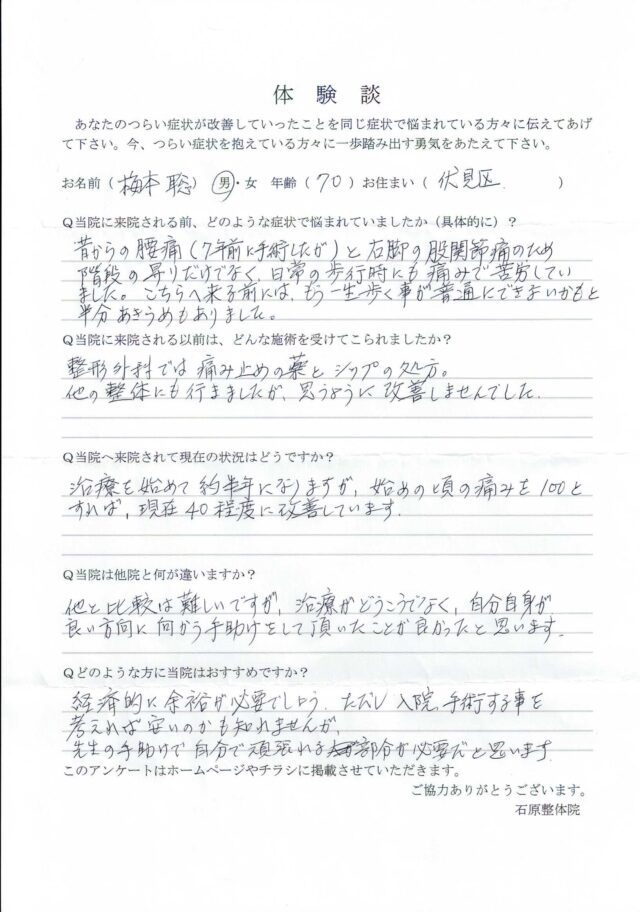 体験談
あなたのつらい症状が改善していったことを同じ症状で悩まれている方々に伝えてあげ
て下さい。今、つらい症状を抱えている方々に一歩踏み出す勇気をあたえて下さい。
お名前（梅本 聡）男・女 年齢（70）お住まい（伏見区）
Ｑ当院に来院される前、どのような症状で悩まれていましたか（具体的に）？
昔からの腰痛(7年前に手術したが)と右脚の股関節痛のため
階段の昇りだけでなく、日常の歩行時にも痛みで苦労してい
ました。こちらへ来る前には、もう一生歩く事が普通にできまいかもと
半分あきらめもありました。
Ｑ当院に来院される以前は、どんな施術を受けてこられましたか？
整形外科では痛み止めの薬とシップの処方。
他の整体にも行きましたが、思うように改善しませんでした。
Ｑ当院へ来院されて現在の状況はどうですか？
治療を始めて約半年になりますが、始めの頃の痛みを100と
すれば、現在40程度に改善しています。
Ｑ当院は他院と何が違いますか？
他と比較は難しいですが、治療がどうこうでなく、自分自身が
良い方向に向かう手助けをして頂いたことが良かったと思います。
Ｑどのような方に当院はおすすめですか？
経済的に余裕が必要でしょう。ただし入院、手術する事を
考えれば安いのかも知れませんが、
先生の手助けで自分で頑張れる部分が必要だと思います
このアンケートはホームページやチラシに掲載させていただきます。
ご協力ありがとうございます。
石原整体院